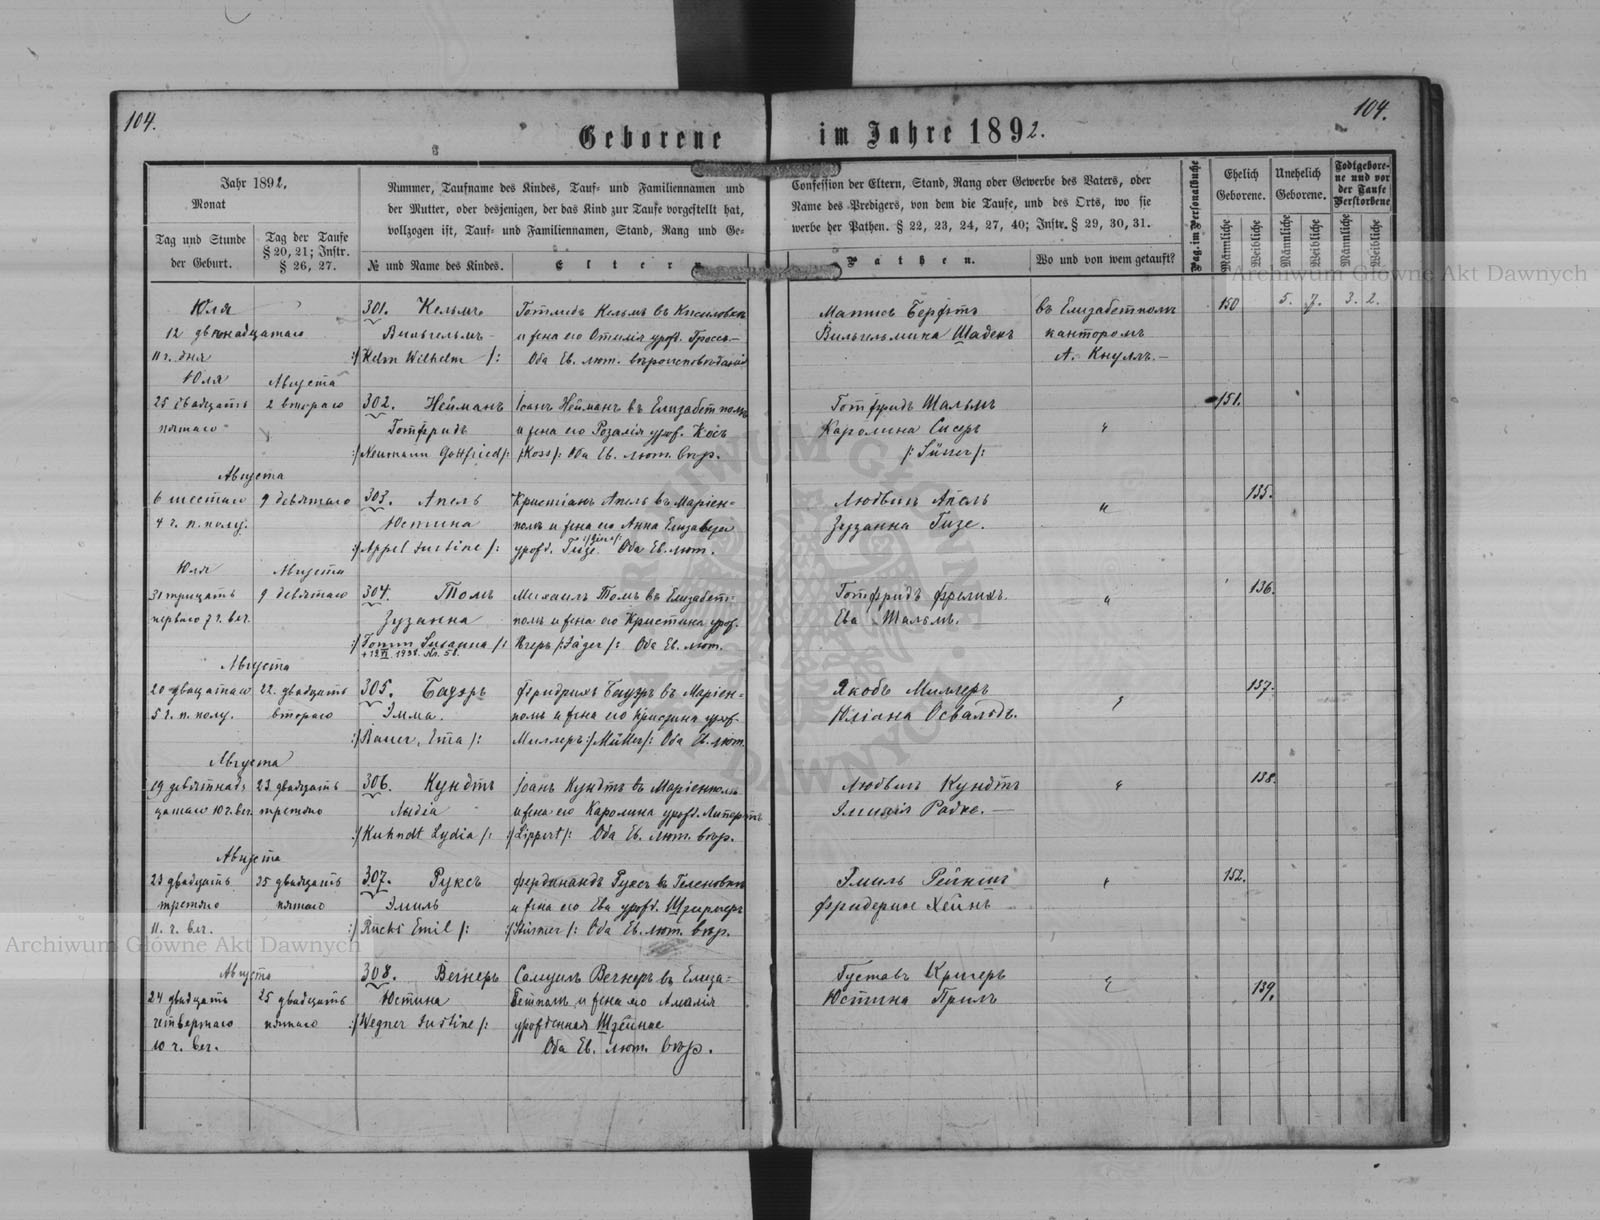 104.
104.
Geborene im Jahre 1892.
Jahr 1892.
Monat
Tag und Stunde der Geburt.
Tag der Taufe § 20, 21; Instr. § 26, 27.
Nummer, Taufname des Kindes, Tauf- und Familiennamen und
der Mutter, oder desjenigen, der das Kind zur Taufe vorgestellt hat,
vollzogen ist, Tauf- und Familiennamen, Stand, Rang und Ge-
№ und Name des Kindes.
Eltern
Confession der Eltern, Stand, Rang oder Gewerbe des Vaters, oder
Name des Predigers, von dem die Taufe, und des Orts, wo sie
werbe der Pathen. § 22, 23, 24, 27, 40; Instr. § 29, 30, 31.
Pathen.
Wo und von wem getauft?
Pag. im Personalbuche
Ehelich Geborene.
Unehelich Geborene.
Todtgebore-
ne und vor
der Taufe
Verstorbene
Männliche
Weibliche
Männliche
Weibliche
Männliche
Weibliche
Юля
301. Кельмъ
Готлибъ Кельмъ въ Кисиловкѣ
въ Елизабетполѣ
150
5. 7. 3. 2.
12 двѣнадцатаго
Вильгельмъ
и жена его Отилія урожд. Гроссъ
Вильгельмина Шадекъ
канторомъ
11 ч. дня
:/Kelm Wilhelm /:
Оба Ев. лют. вѣроисповѣданія
А. Кнулль.
Юля Августа
25 двадцать 2 второго
302. Нейманъ
Іоанъ Нейманъ въ Елизабетполѣ
Готфридъ Шальмъ
151.
пятаго
Готфридъ
и жена его Розалія урожд. Косъ
Каролина
"
:/Neumann Gottfried/:
/:Koss/: Оба Ев. лют. вѣр.
Августа
6 шестаго 9 девятаго
303. Апель
Кристіанъ Апель въ Маріен-
Людвигъ Апель
135.
4 ч. п. полу.
Юстина
полѣ и жена его Анна Елизавета
Зузанна Гизе.
"
:/Appel Justine /:
урожд. Гизе Оба Ев. лют.
Юля Августа
31 трицать 9 девятаго
304. Томъ
Михаилъ Томъ въ Елизабет-
136.
перваго 7 ч. веч.
Зузанна
полѣ и жена его Кристина урожд.
Ева Шальмъ.
"
:/Tomm Susanna /:
Егеръ /:Jäger/: Оба Ев. лют.
Августа
20 двацатаго 22. двадцать
305. Бауэръ
Фридрихъ Бауэръ въ Маріен-
Якобъ Миллеръ
137.
5 ч. п. полу. второго
Эмма.
полѣ и жена его Кристина урожд.
Юліана Освальдъ.
"
:/Bauer, Ema /:
Миллеръ:/Müller/: Оба Ев. лют.
Августа
19 девятнад- 23 двадцать
306. Кундтъ
Іоанъ Кундтъ въ Маріенполѣ
Людвигъ Кундтъ
138.
цатаго 10 ч. веч. третяго
Лидіа
и жена его Каролина урожд. Липертъ
Эмилія Радке.
"
:/Kuhndt Lydia /:
:/Lippert/: Оба Ев. лют. вѣр.
Августа
23 двадцать 25 двадцать
307. Руксъ
Фердинандъ Руксъ въ Геленовкѣ
152.
третяго пятаго
Эмиль
и жена его Ева урожд.
Фридерике Хейнъ
11. ч. веч.
:/Rucks Emil /:
Оба Ев. лют. вѣр.
Августа
308. Вегнеръ
Самуилъ Вегнеръ въ Елиза-
Густавъ Кригеръ
139.
24 двадцать 25 двадцать
Юстина
бетполѣ и жена его Амалія
Юстина Приль
"
четвертаго пятаго
:/Wegner Justine /:
урожденная
10 ч. веч.
Оба Ев. лют. вѣр.
Archiwum Główne Akt Dawnych
Archiwum Główne Akt Dawnych
ARCHIWUM GŁÓWNE AKT DAWNYCH